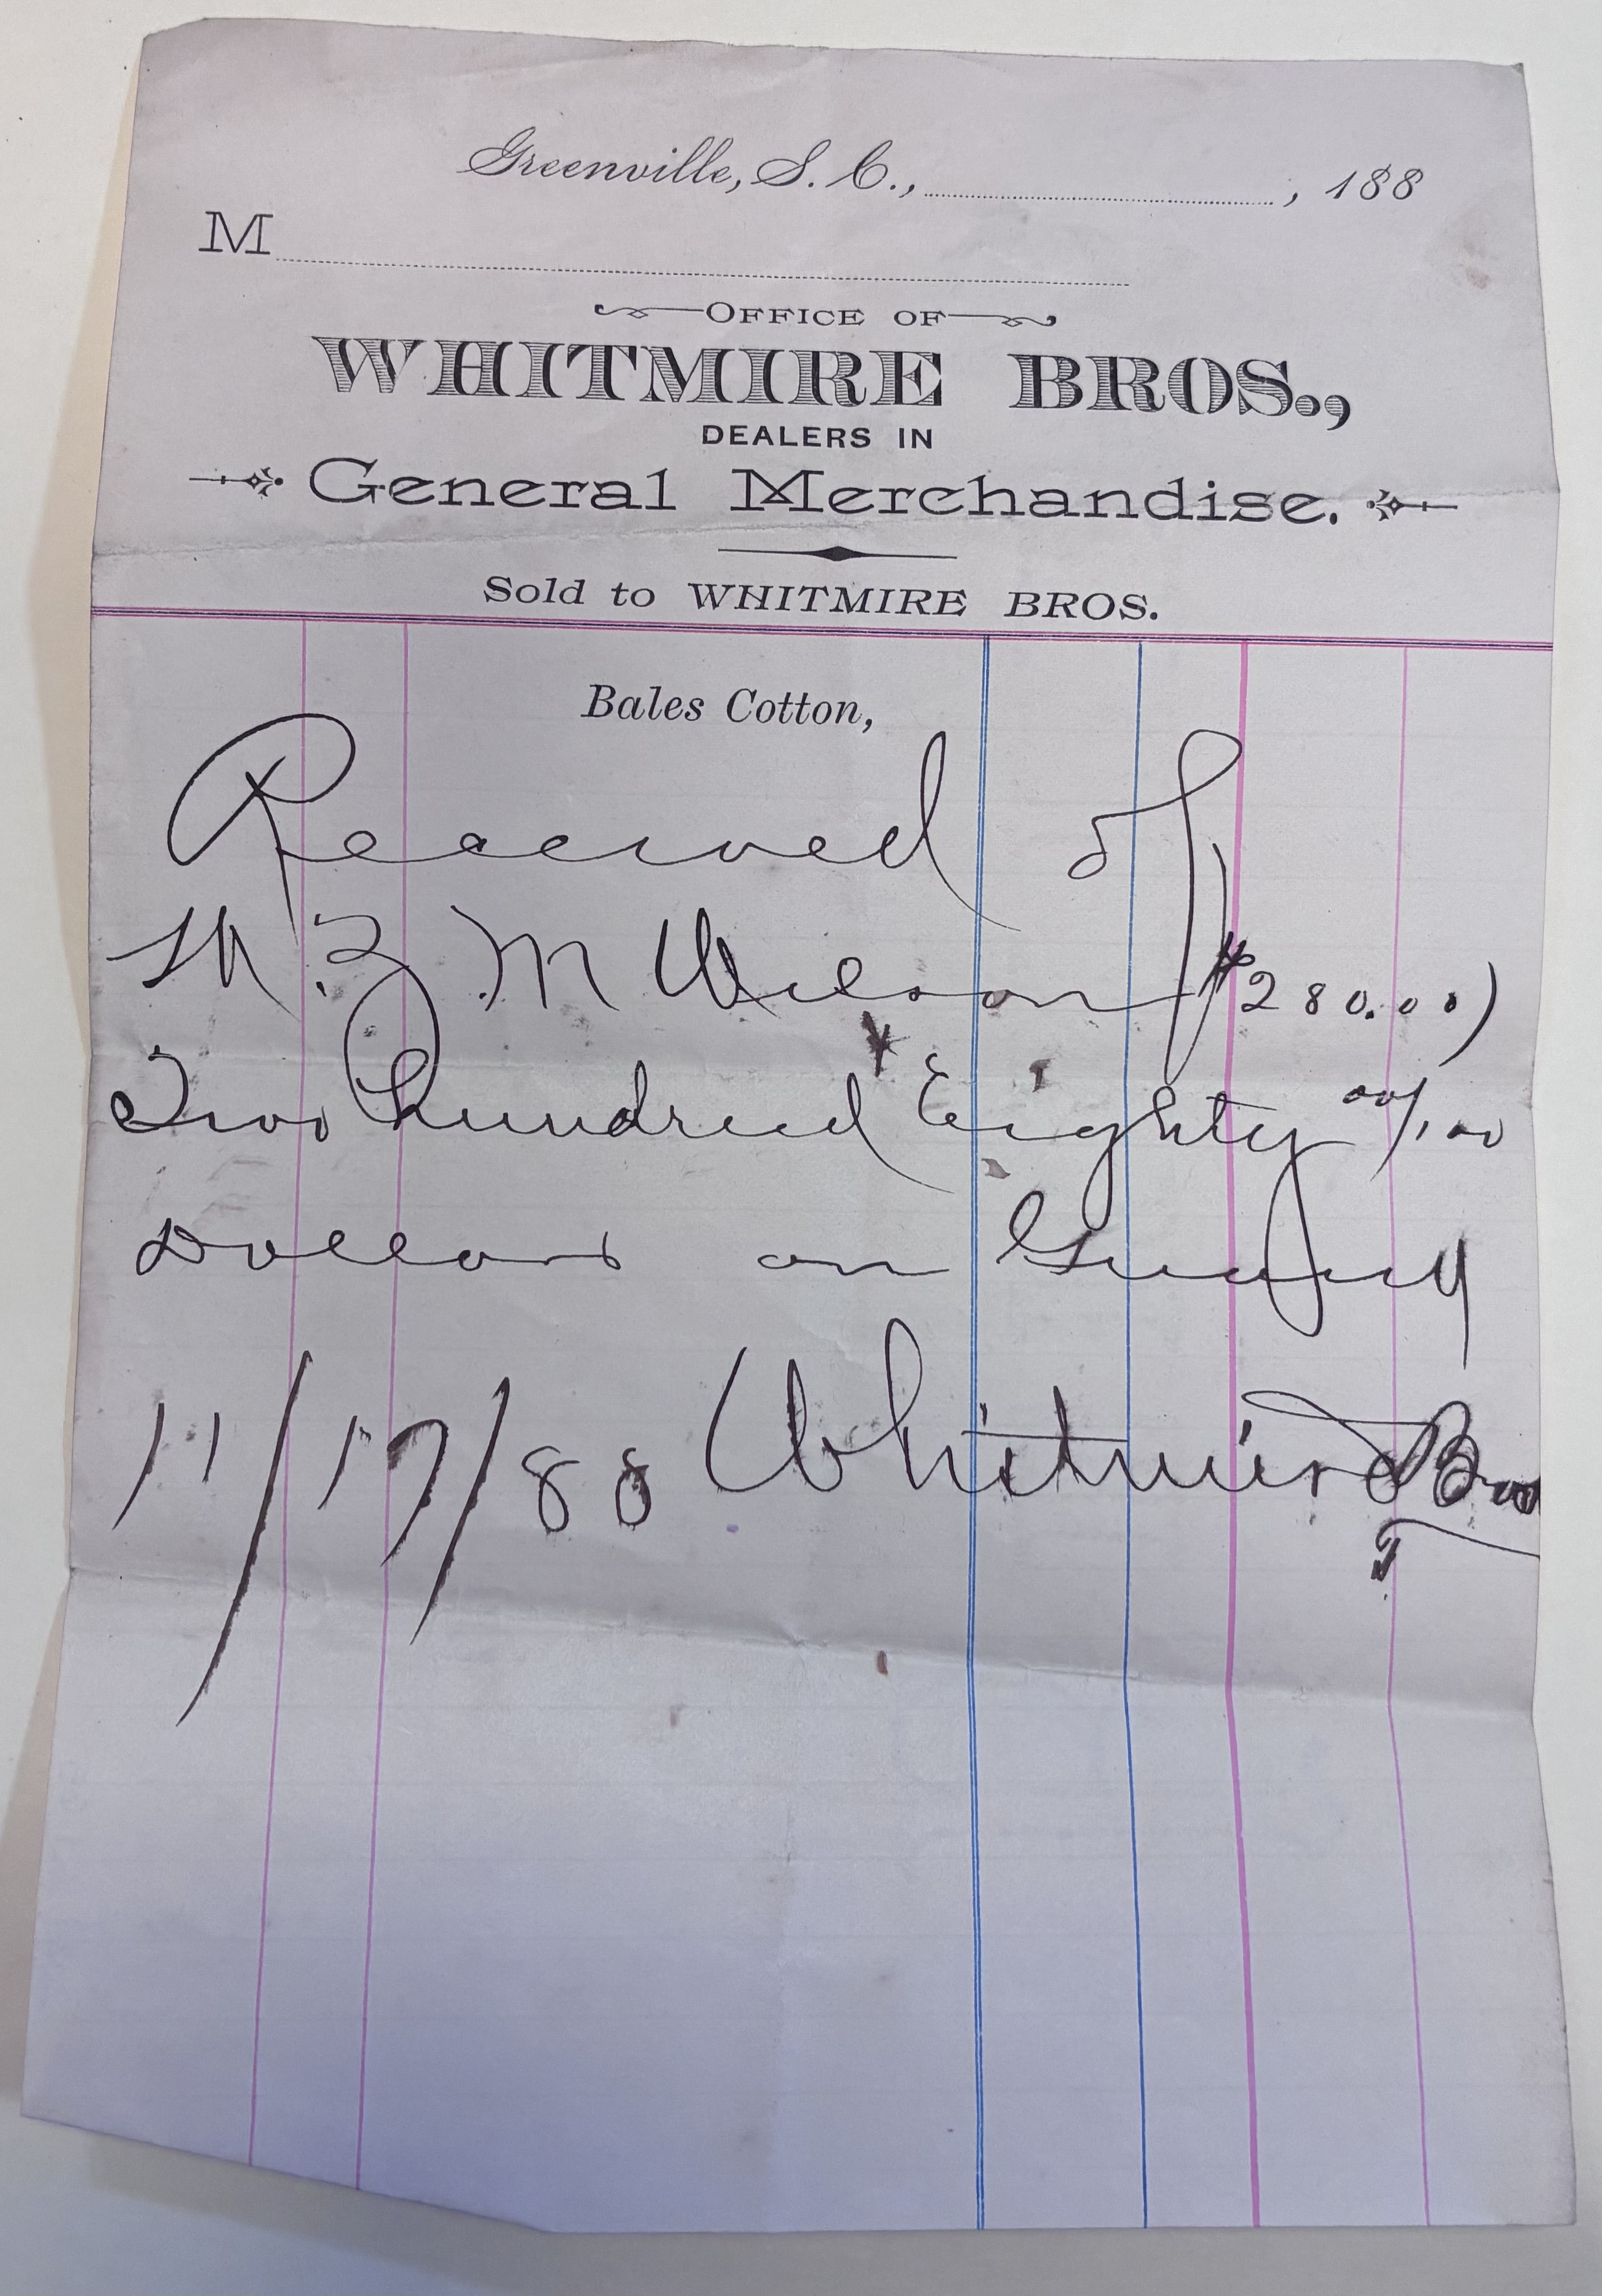 Greenville, S. C., , 188
M
OFFICE OF
WHITMIRE BROS.,
DEALERS IN
General Merchandise.
Sold to WHITMIRE BROS.
Bales Cotton,
Received of
M Wilson $280.00)
Two hundred Eighty 00/100
Dollars on
11/17/88 Whitmire Bros